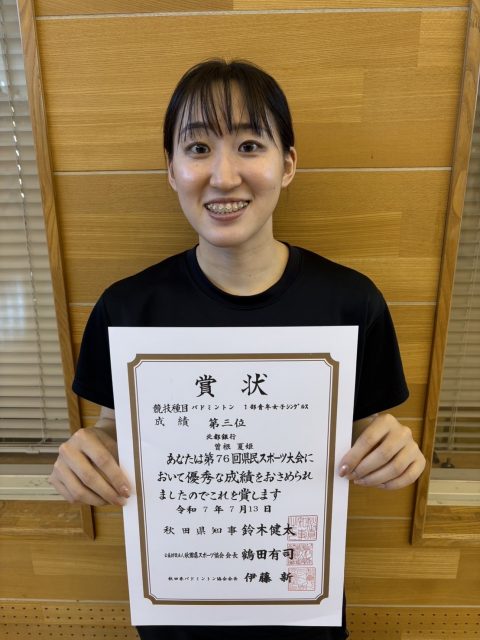 賞状
競技種目 バドミントン 1部青年女子シングルス
成績 第三位
北都銀行
曽根 夏姫
あなたは第76回県民スポーツ大会に
おいて優秀な成績をおさめられ
ましたのでこれを賞します
令和7年7月13日
秋田県知事 鈴木健太
公益財団法人秋田県スポーツ協会 会長 鶴田有司
秋田県バドミントン協会会長 伊藤 新